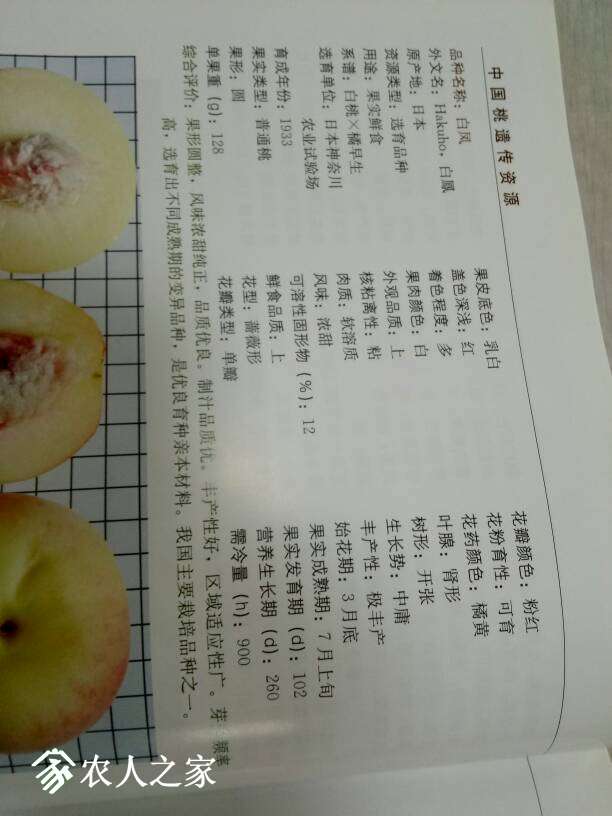 中国桃遗传资源
品种名称：白凤
外文名：Hakuho，白鳳
原产地：日本
资源类型：选育品种
用途：果实鲜食
系谱：白桃×橘早生
选育单位：日本神奈川
农业试验场
育成年份：1933
果实类型：普通桃
果形：圆
单果重（g）：128
果皮底色：乳白
盖色深浅：红
着色程度：多
果肉颜色：白
外观品质：上
核粘离性：粘
肉质：软溶质
风味：浓甜
可溶性固形物（%）：12
鲜食品质：上
花型：蔷薇形
花瓣类型：单瓣
花瓣颜色：粉红
花粉育性：可育
花药颜色：橘黄
叶腺：肾形
树形：开张
生长势：中庸
丰产性：极丰产
始花期：3月底
果实成熟期：7月上旬
果实发育期（d）：102
营养生长期（d）：260
需冷量（h）：900
综合评价：果形圆整，风味浓甜纯正，品质优良。制汁品质优。丰产性好，区域适应性广。芽 频率
高，选育出不同成熟期的变异品种，是优良育种亲本材料。我国主要栽培品种之一。
农人之家